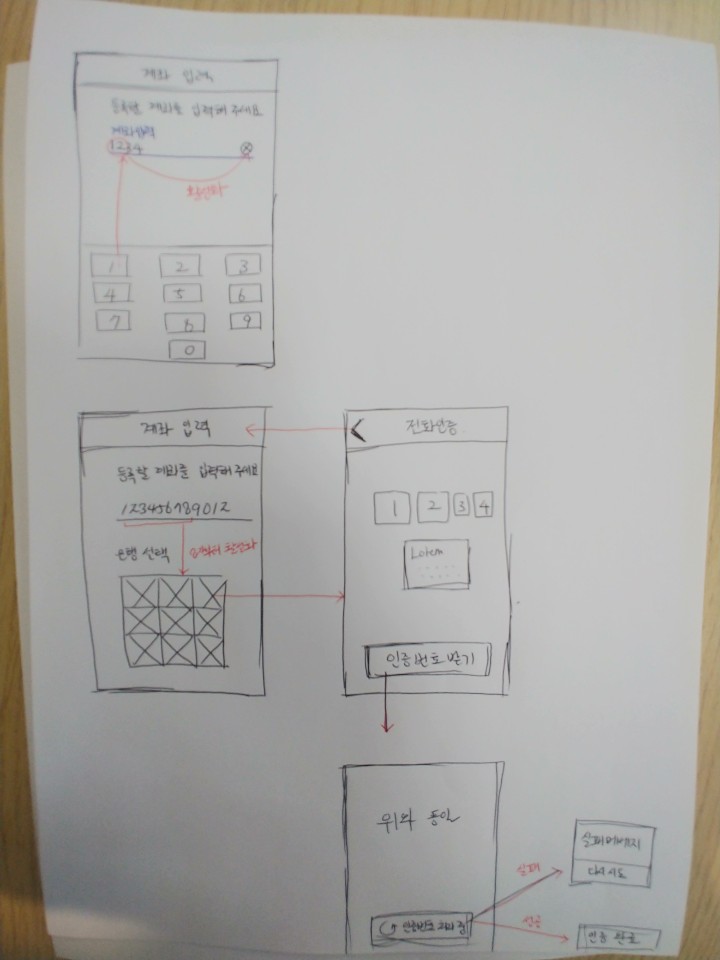 계좌 입력
등록할 계좌를 입력해 주세요
계좌입력
1234
활성화
1 2 3
4 5 6
7 8 9
0
계좌 입력
등록할 계좌를 입력해 주세요
123456789012
은행 선택
활성화
전화인증
1 2 3 4
Lorem
인증번호 받기
위와 동일
실패
실패메세지
다시시도
인증번호 처리 중
성공
인증 완료